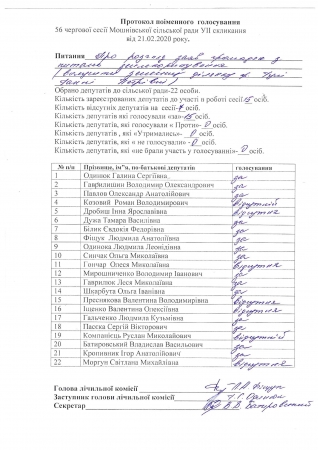 Протокол поіменного голосування
56 чергової сесії Мошнівської сільської ради УІІ скликання
від 21.02.2020 року.
Питання Про розгляд заяв громадян з
питань землекористування
Обрано депутатів до сільської ради-22 особи.
Кількість зареєстрованих депутатів до участі в роботі сесії 15 осіб.
Кількість відсутніх депутатів на сесії-7 осіб.
Кількість депутатів які голосували «за»-15 осіб.
Кількість депутатів, які голосували « Проти»- 0 осіб.
Кількість депутатів , які «Утримались»- 0 осіб.
Кількість депутатів , які « не голосували» -0 осіб.
Кількість депутатів , які «не брали участь у голосуванні»- 0 осіб.
№ п/п Прізвище, ім"я, по-батькові депутатів голосування
1 Одинюк Галина Сергіївна за
2 Гаврилишин Володимир Олександрович за
3 Павлов Олександр Анатолійович за
4 Козовий Роман Володимирович відсутній
5 Дробиш Інна Ярославівна відсутня
6 Дужа Тамара Василівна за
7 Білик Євдокія Федорівна за
8 Фіщук Людмила Анатоліївна за
9 Одинока Людмила Леонідівна за
10 Сничак Ольга Миколаївна за
11 Гончар Олеся Миколаївна відсутня
12 Мирошниченко Володимир Іванович за
13 Гаврилюк Леся Миколаївна за
14 Шкарбута Ольга Іванівна за
15 Преснякова Валентина Володимирівна відсутня
16 Іщенко Валентина Олексіївна відсутня
17 Гальченко Людмила Кузьмівна за
18 Пасєка Сергій Вікторович за
19 Компанієць Руслан Миколайович відсутній
20 Батировський Владислав Васильович за
21 Кропивник Ігор Анатолійович за
22 Моргун Світлана Михайлівна відсутня
Голова лічильної комісії Л.А. Фіщук
Заступник голови лічильної комісії Г.С. Одинюк
Секретар В.В. Батировський